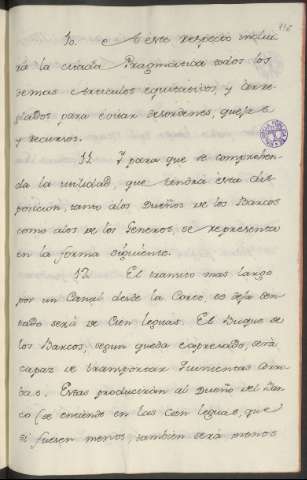 10. A este respecto inclui
rá la citada Pragmática todos los
demas Articulos equitativos, y arre-
glados para evitar desordenes, quejas
y recursos.
11. Y para que se comprehen-
da la utilidad, que tendrá esta dis-
posicion, tanto alos Dueños de los Barcos
como alos de los Generos, se representa
en la forma siguiente.
12. El transito mas largo
por un Canal desde la Corte, se deja con-
tado será de Cien leguas. El Buque de
los Barcos, segun queda expresado, será
capaz de transportar quinientas arro-
bas. Estas produciran al Dueño del Bar-
co (se entiende en las Cien leguas, que
si fuesen menos, tambien será menos